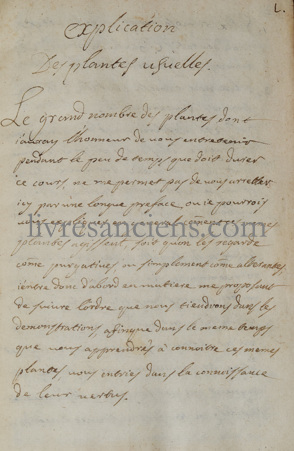 1.
explication
Des plantes usuelles.
Le grand nombre des plantes dont
j'auray l'honneur de vous entretenir
pendant le peu de temps que doit durer
ce cours, ne me permet pas de vous arretter
icy par une longue preface, ou je pourrois
vous expliquer en general comẽnt ces
livresanciens.com
plantes agissent, soit qu'on les regarde
comẽ purgatives ou simplement comẽ alterantes
j'entre donc d'abord en matiere me proposant
de suivre l'ordre que nous tiendrons dans les
demonstrations, affin que dans le meme temps
que vous apprendrés à connoitre ces memes
plantes vous entriés dans la connoissance
de leur vertus.